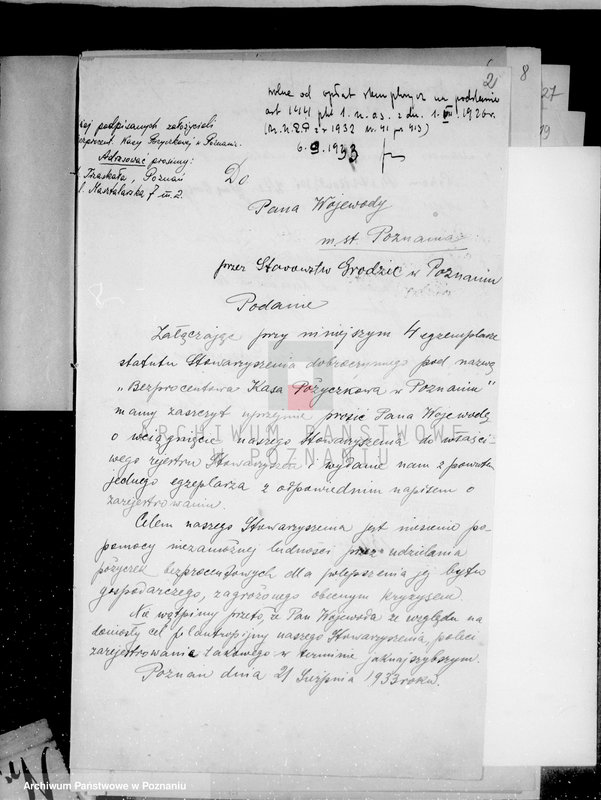 2
8
27
19
wolne od opłat stemplowych na podstawie
art 144 pkt 1. u. o s. z dn. 1. VII 1926 r.
(Dz. U. R. P. z r 1932 nr. 41 p 413)
6. 9. 1933
podpisanych założycieli
Kasy Pożyczkowej w Poznaniu
Adresować prosimy:
Kraskała, Poznań
l. Masztalarska 7 m. 2.
Do
Pana Wojewody
m. st. Poznania
przez Starostwo Grodzkie w Poznaniu
Podanie
Załączając przy niniejszym 4 egzemplarze
statutu Stowarzyszenia dobroczynnego pod nazwą
"Bezprocentowa Kasa Pożyczkowa w Poznaniu"
mamy zaszczyt uprzejmie prosić Pana Wojewodę
o wciągnięcie naszego Stowarzyszenia do właści-
wego rejestru Stowarzyszeń i wydanie nam z powrotem
jednego egzemplarza z odpowiednim napisem o
zarejestrowaniu.
Celem naszego Stowarzyszenia jest niesienie po-
pomocy niezamożnej ludności przez udzielania
pożyczek bezprocentowych dla polepszenia jej bytu
gospodarczego, zagrożonego obecnym kryzysem.
Nie wątpimy przeto, że Pan Wojewoda ze względu na
doniosły cel filantropijny naszego Stowarzyszenia, poleci
zarejestrowanie takowego w terminie jaknajszybszym.
Poznań dnia 21 Sierpnia 1933 roku.
ARCHIWUM PAŃSTWOWE
POZNANIU
Archiwum Państwowe w Poznaniu